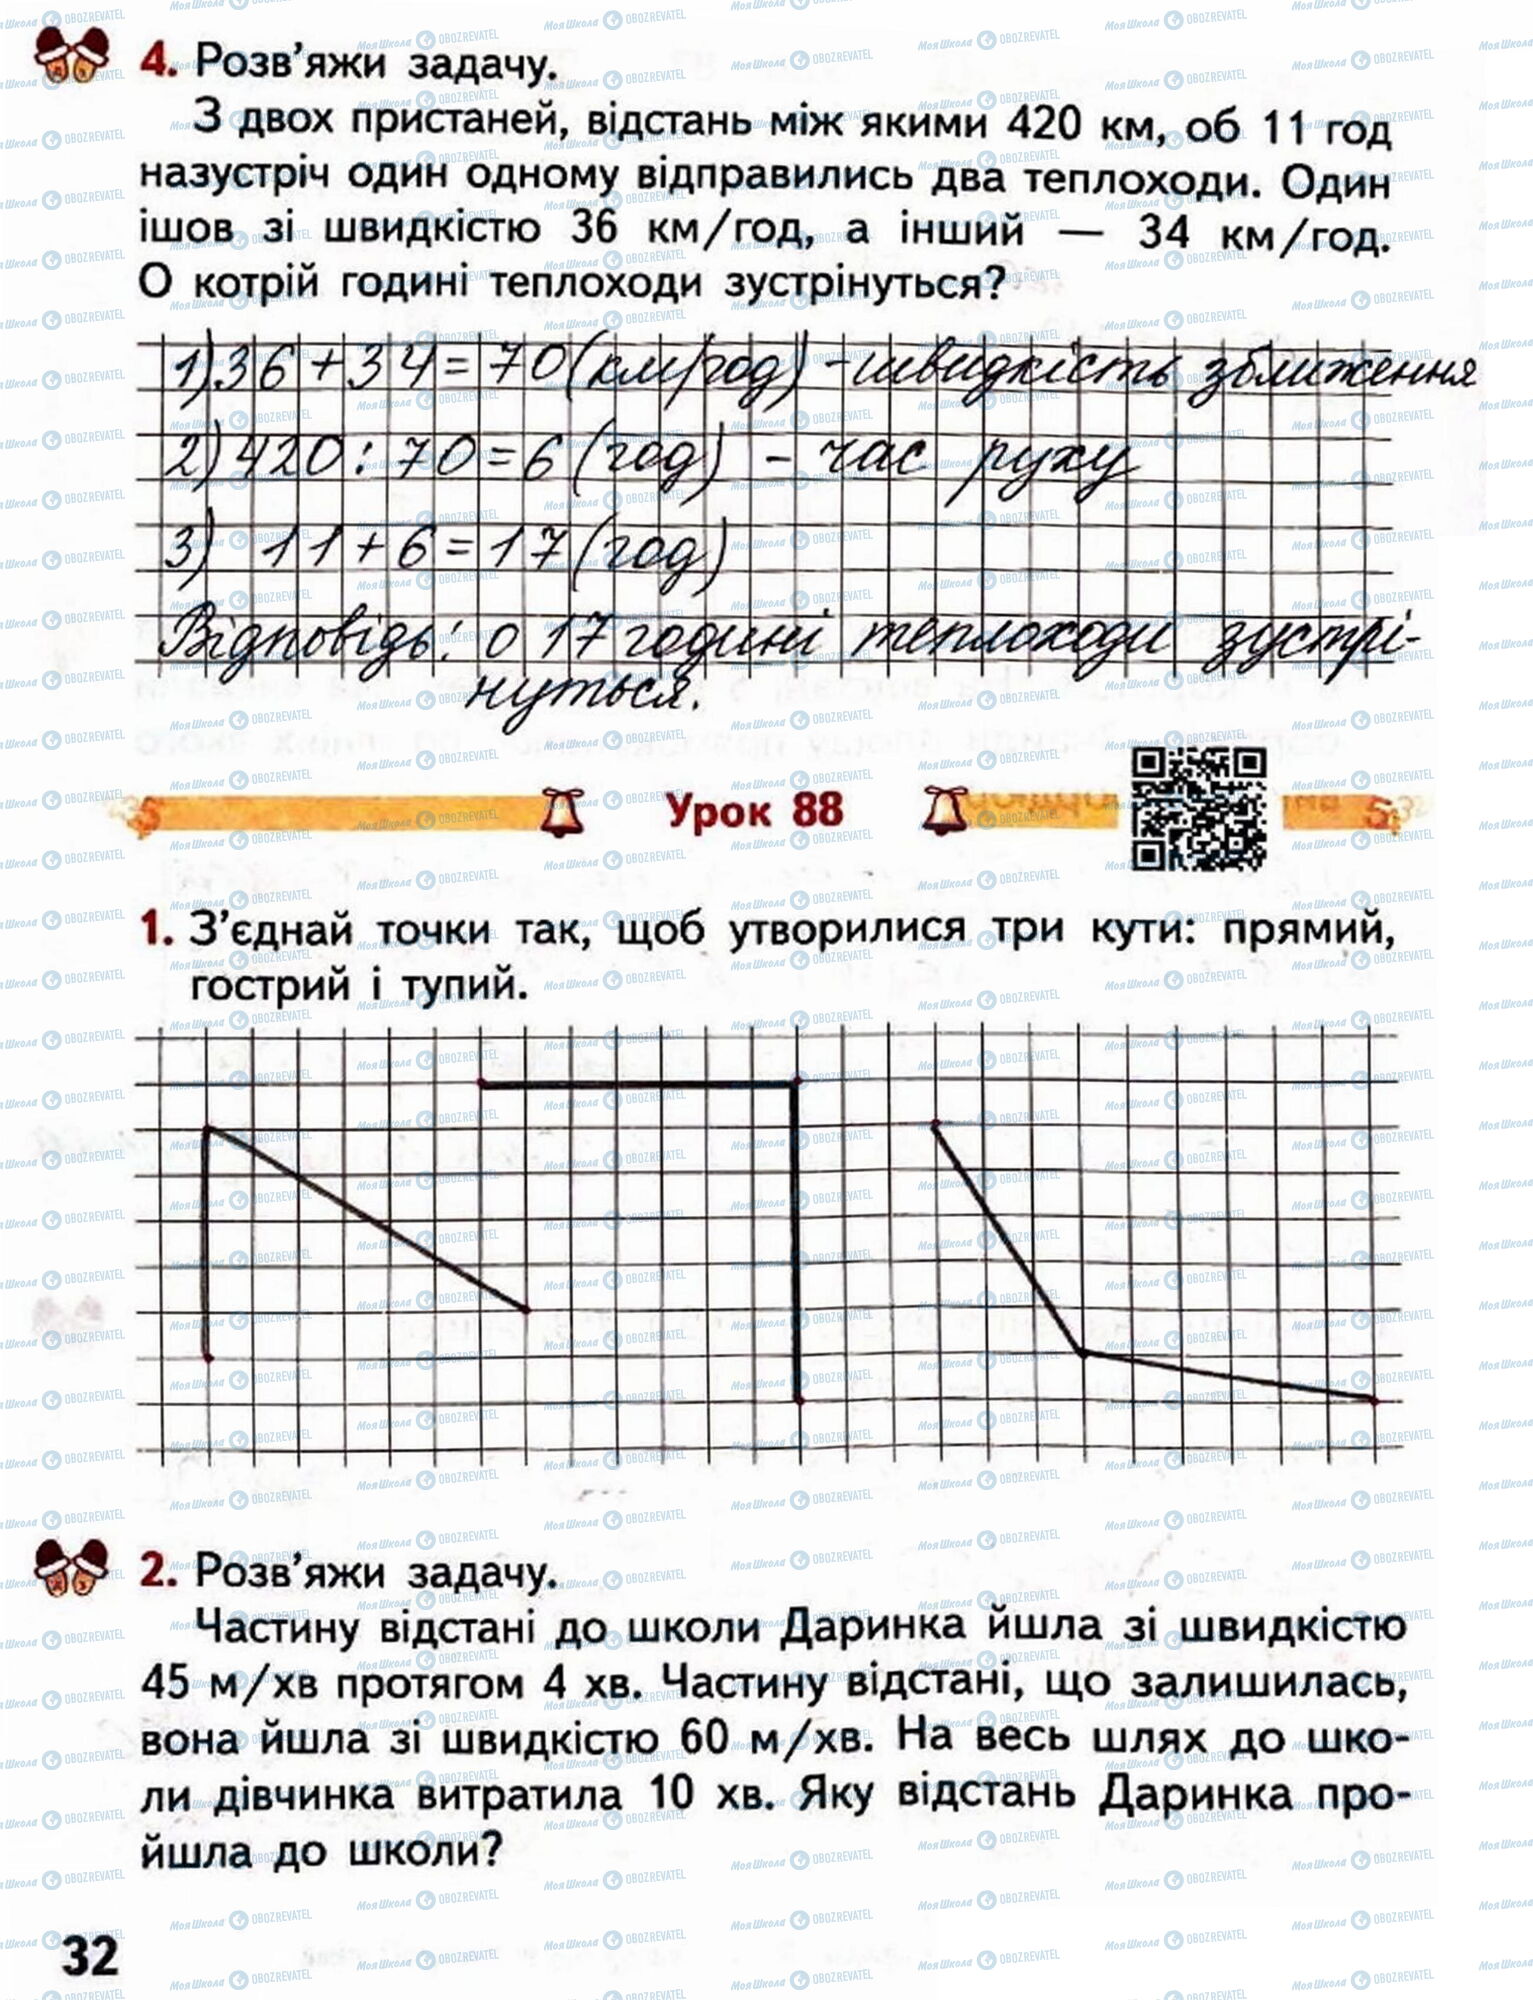 4. Розв'яжи задачу.
З двох пристаней, відстань між якими 420 км, об 11 год
назустріч один одному відправились два теплоходи. Один
ішов зі швидкістю 36 км/год, а інший — 34 км/год.
О котрій годині теплоходи зустрінуться?
1) 36 + 34 = 70 (км/год) - швидкість зближення
2) 420 : 70 = 6 (год) - час руху
3) 11 + 6 = 17 (год)
Відповідь: о 17 годині теплоходи зустрі-
нуться.
Урок 88
1. З'єднай точки так, щоб утворилися три кути: прямий,
гострий і тупий.
2. Розв'яжи задачу.
Частину відстані до школи Даринка йшла зі швидкістю
45 м/хв протягом 4 хв. Частину відстані, що залишилась,
вона йшла зі швидкістю 60 м/хв. На весь шлях до шко-
ли дівчинка витратила 10 хв. Яку відстань Даринка про-
йшла до школи?
32
МояШкола OBOZREVATEL